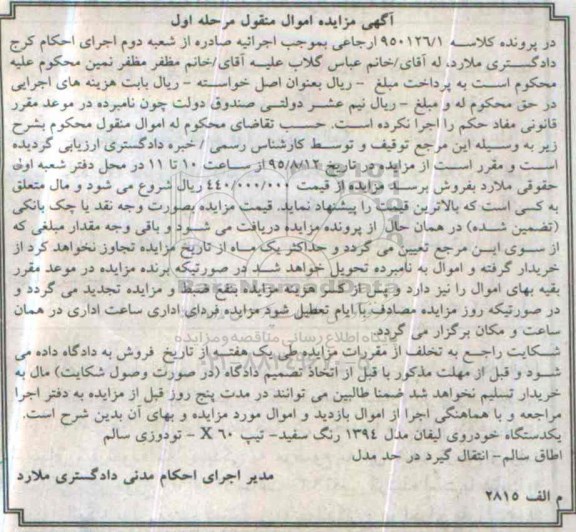 آگهی مزایده اموال منقول مرحله اول
در پرونده کلاسه ۹۵۰۱۲۶/۱ ارجاعی بموجب اجرائیه صادره از شعبه دوم اجرای احکام کرج
دادگستری ملارد، له آقای/خانم عباس گلاب علیه آقای/خانم مظفر مظفر نمین محکوم علیه
محکوم است به پرداخت مبلغ – ریال بعنوان اصل خواسته – ریال بابت هزینه های اجرایی
در حق محکوم له و مبلغ – ریال نیم عشر دولتی صندوق دولت چون نامبرده در موعد مقرر
قانونی مفاد حکم را اجرا نکرده است. حسب تقاضای محکوم له اموال منقول محکوم بشرح
زیر به وسیله این مرجع توقیف و توسط کارشناس رسمی / خبره دادگستری ارزیابی گردیده
است و مقرر است از مزایده در تاریخ ۹۵/۸/۱۲ از ساعت ۱۰ تا ۱۱ در محل دفتر شعبه اول
حقوقی ملارد بفروش برسد مزایده از قیمت ۴۴۰/۰۰۰/۰۰۰ ریال شروع می شود و مال متعلق
به کسی است که بالاترین قیمت را پیشنهاد نماید. قیمت مزایده بصورت وجه نقد یا چک بانکی
(تضمین شده) در همان حال از پرونده مزایده دریافت می شود و باقی وجه مقدار مبلغی که
از سوی این مرجع تعیین می گردد و حداکثر یک ماه از تاریخ مزایده تجاوز نخواهد کرد از
خریدار گرفته و اموال به نامبرده تحویل خواهد شد در صورتیکه برنده مزایده در موعد مقرر
بقیه بهای اموال را نیز دارد و پس از کسر هزینه مزایده بنفع ضبط و مزایده تجدید می گردد و
در صورتیکه روز مزایده مصادف با ایام تعطیل شود مزایده فردای اداری ساعت اداری در همان
ساعت و مکان برگزار می گردد.
شکایت راجع به تخلف از مقررات مزایده طی یک هفته از تاریخ فروش به دادگاه داده می
شود و قبل از مهلت مذکور یا قبل از اتخاذ تصمیم دادگاه (در صورت وصول شکایت) مال به
خریدار تسلیم نخواهد شد ضمنا طالبین می توانند در مدت پنج روز قبل از مزایده به دفتر اجرا
مراجعه و با هماهنگی اجرا از اموال بازدید و اموال مورد مزایده و بهای آن بدین شرح است.
یکدستگاه خودروی لیفان مدل ۱۳۹۴ رنگ سفید- تیپ X ۶۰ – تودوزی سالم
اطاق سالم– انتقال گیرد در حد مدل
مدیر اجرای احکام مدنی دادگستری ملارد
م الف ۲۸۱۵